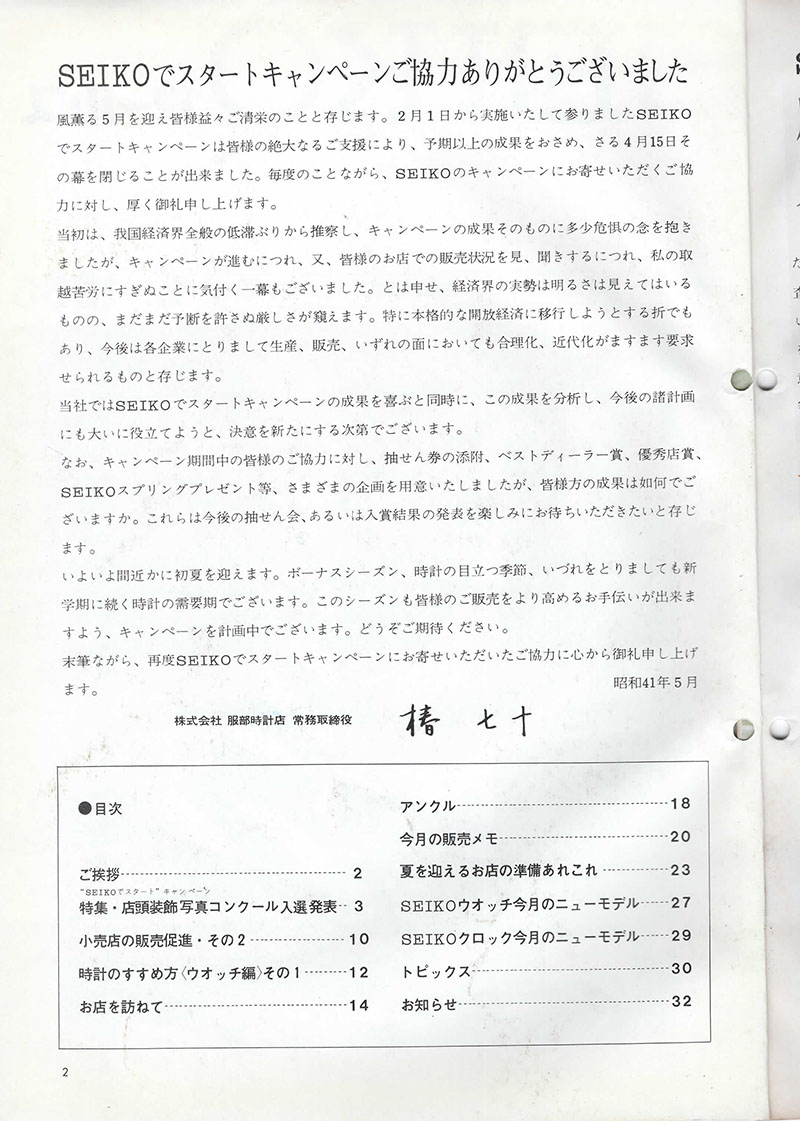 SEIKOでスタートキャンペーンご協力ありがとうございました
風薫る5月を迎え皆様益々ご清栄のことと存じます。2月1日から実施いたして参りましたSEIKO
でスタートキャンペーンは皆様の絶大なるご支援により、予期以上の成果をおさめ、さる4月15日そ
の幕を閉じることが出来ました。毎度のことながら、SEIKOのキャンペーンにお寄せいただくご協
力に対し、厚く御礼申し上げます。
当初は、我国経済界全般の低滞ぶりから推察し、キャンペーンの成果そのものに多少危惧の念を抱き
ましたが、キャンペーンが進むにつれ、又、皆様のお店での販売状況を見、聞きするにつれ、私の取
越苦労にすぎぬことに気付く一幕もございました。とは申せ、経済界の実勢は明るさは見えてはいる
ものの、まだまだ予断を許さぬ厳しさが窺えます。特に本格的な開放経済に移行しようとする折でも
あり、今後は各企業にとりまして生産、販売、いずれの面においても合理化、近代化がますます要求
せられるものと存じます。
当社ではSEIKOでスタートキャンペーンの成果を喜ぶと同時に、この成果を分析し、今後の諸計画
にも大いに役立てようと、決意を新たにする次第でございます。
なお、キャンペーン期間中の皆様のご協力に対し、抽せん券の添附、ベストディーラー賞、優秀店賞、
SEIKOスプリングプレゼント等、さまざまの企画を用意いたしましたが、皆様方の成果は如何でご
ざいますか。これらは今後の抽せん会、あるいは入賞結果の発表を楽しみにお待ちいただきたいと存じ
ます。
いよいよ間近かに初夏を迎えます。ボーナスシーズン、時計の目立つ季節、いづれをとりましても新
学期に続く時計の需要期でございます。このシーズンも皆様のご販売をより高めるお手伝いが出来ま
すよう、キャンペーンを計画中でございます。どうぞご期待ください。
末筆ながら、再度SEIKOでスタートキャンペーンにお寄せいただいたご協力に心から御礼申し上げ
ます。
昭和41年5月
株式会社 服部時計店 常務取締役 椿 七十
●目次
ご挨拶 2
"SEIKOでスタート" キャンペーン
特集・店頭装飾写真コンクール入選発表 3
小売店の販売促進・その2 10
時計のすすめ方〈ウオッチ編〉その1 12
お店を訪ねて 14
アンクル 18
今月の販売メモ 20
夏を迎えるお店の準備あれこれ 23
SEIKOウオッチ今月のニューモデル 27
SEIKOクロック今月のニューモデル 29
トピックス 30
お知らせ 32
2